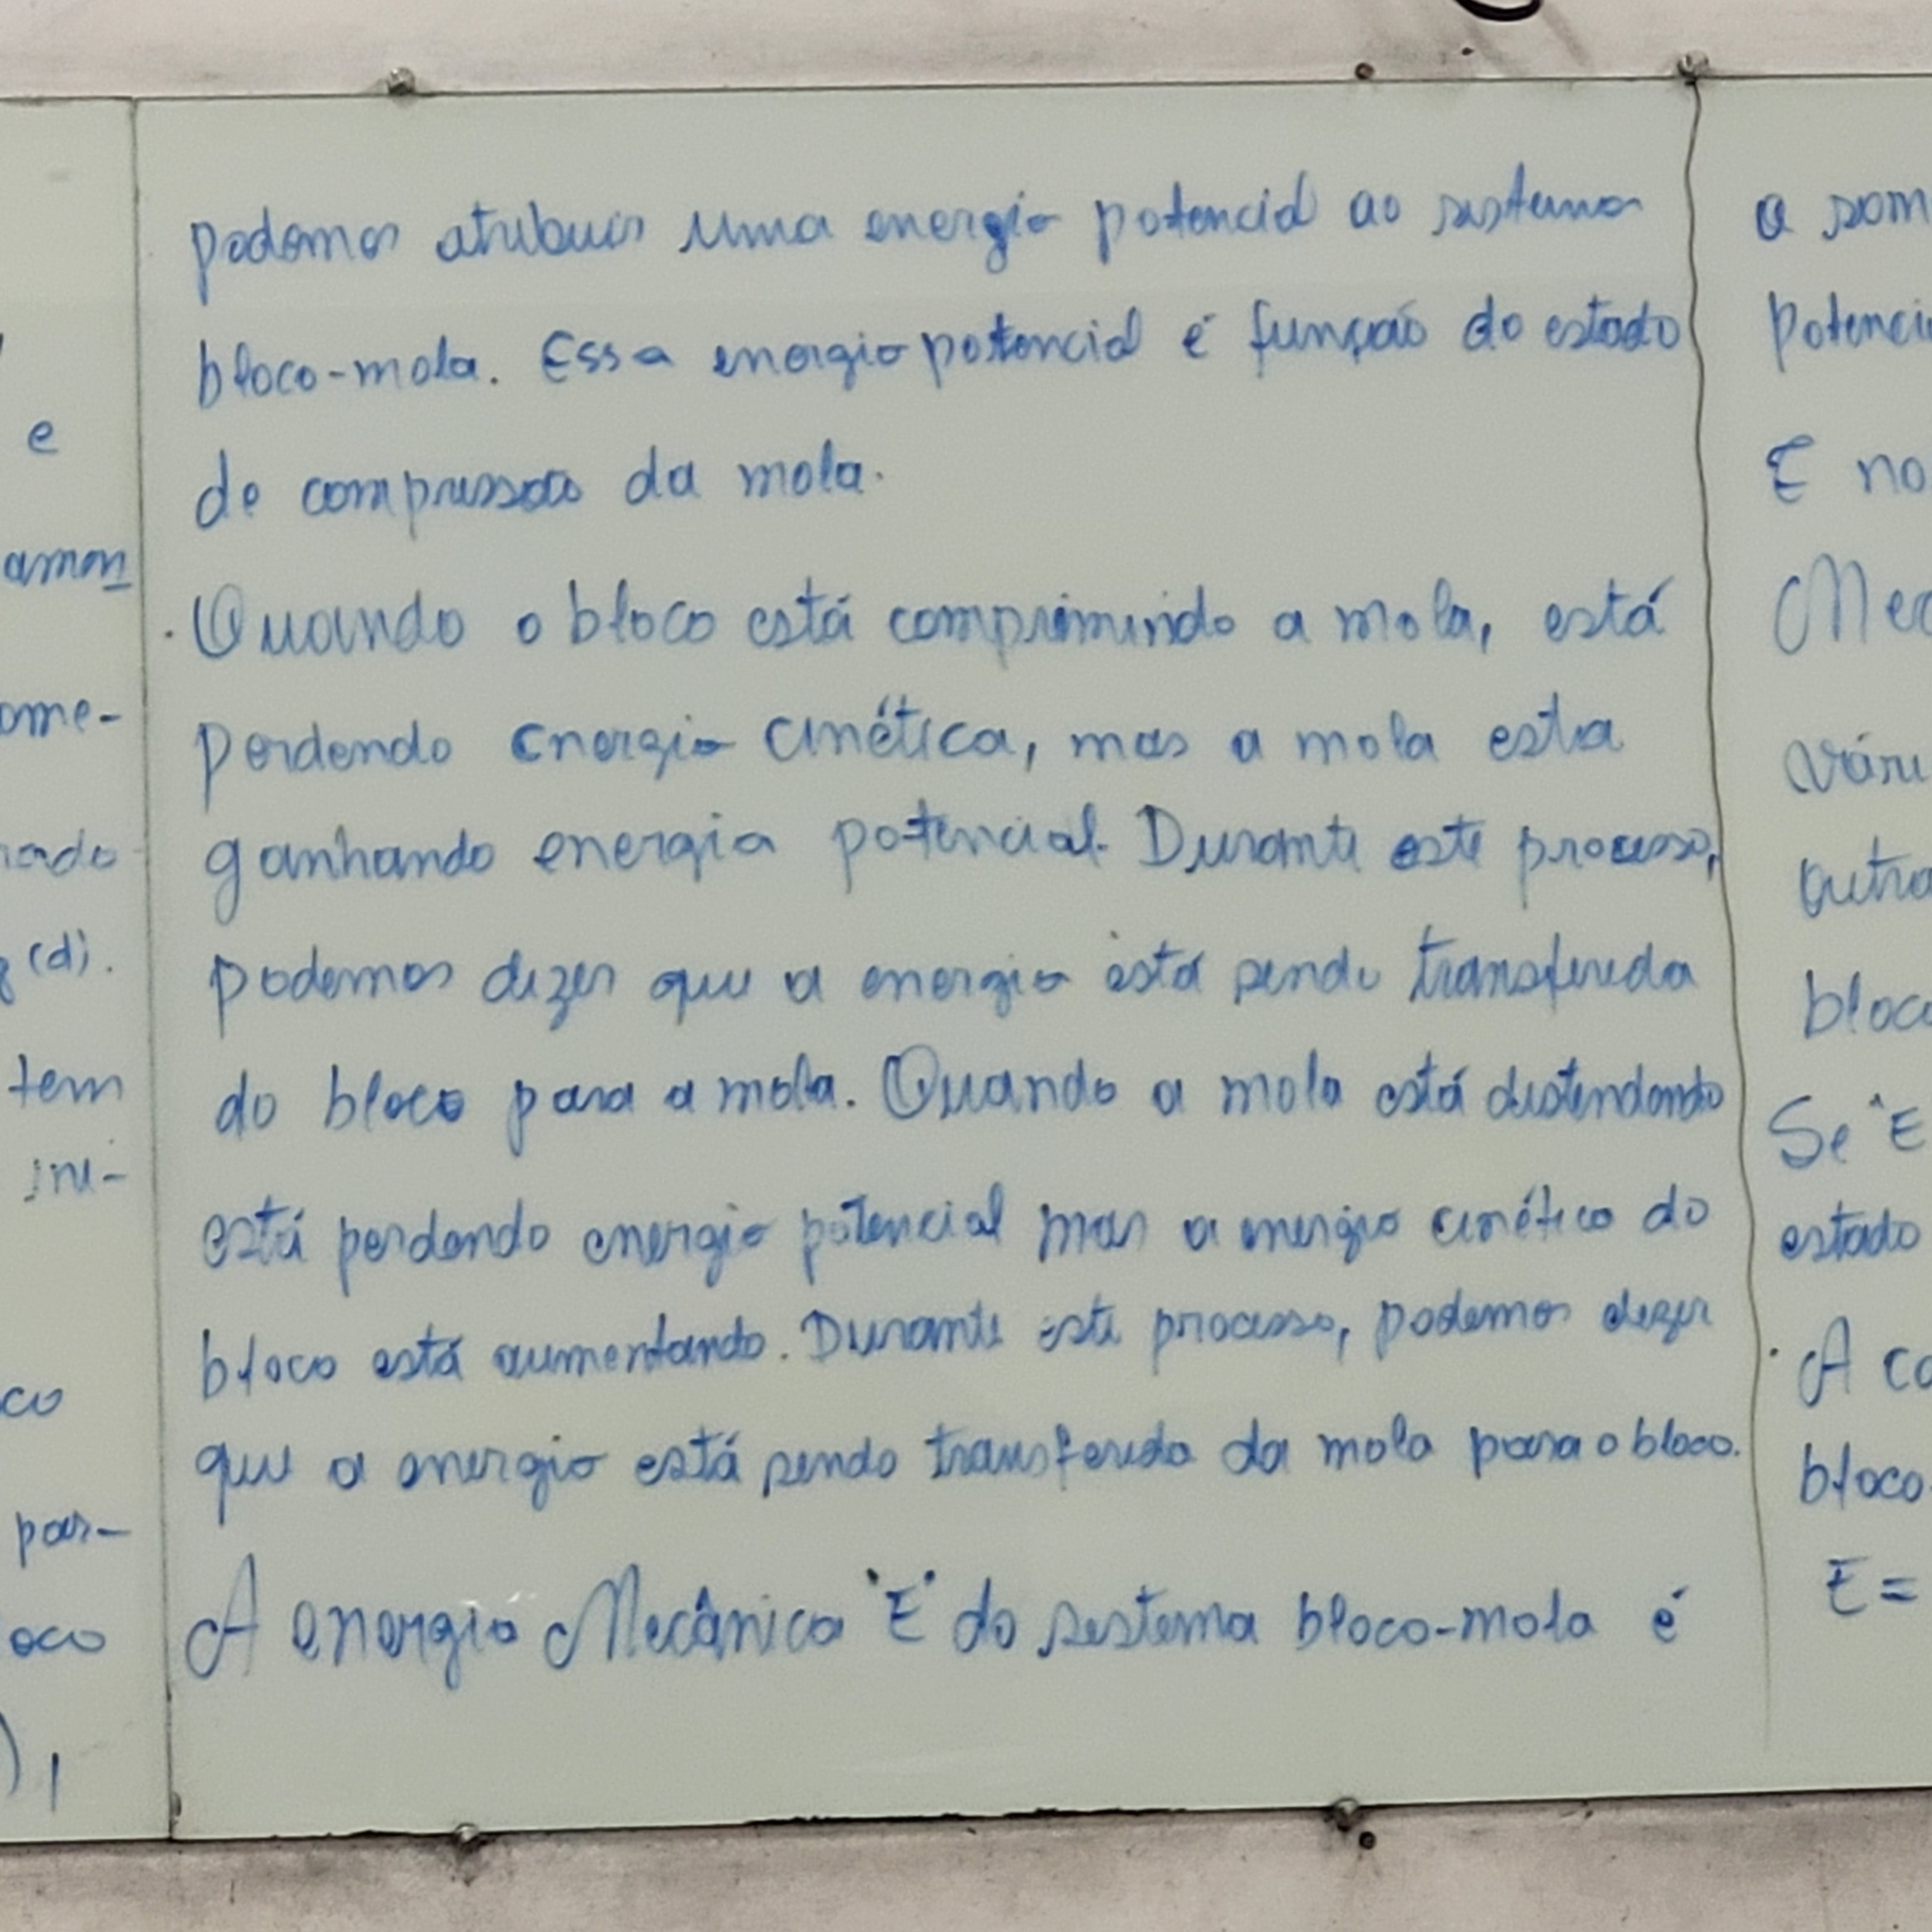 podemos atribuir uma energia potencial ao sistema
bloco-mola. Essa energia potencial é função do estado
de compressão da mola.
. Quando o bloco está comprimindo a mola, está
perdendo energia cinética, mas a mola esta
ganhando energia potencial. Durante este processo,
podemos dizer que a energia está sendo transferida
do bloco para a mola. Quando a mola está distendendo
está perdendo energia potencial mas a energia cinética do
bloco está aumentando. Durante este processo, podemos dizer
que a energia está sendo transferida da mola para o bloco.
A energia Mecânica "E" do sistema bloco-mola é
e
aman
ome-
(d).
tem
ini-
co
par-
oco
a som
potenci
E no
Mec
vári
outra
bloco
Se "E
estado
. A co
bloco-
E =